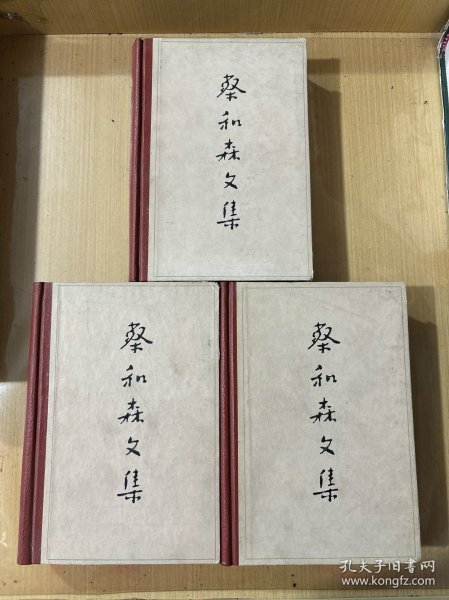 蔡和森文集
蔡和森文集
蔡和森文集
孔夫子旧书网
www.kongfz.com